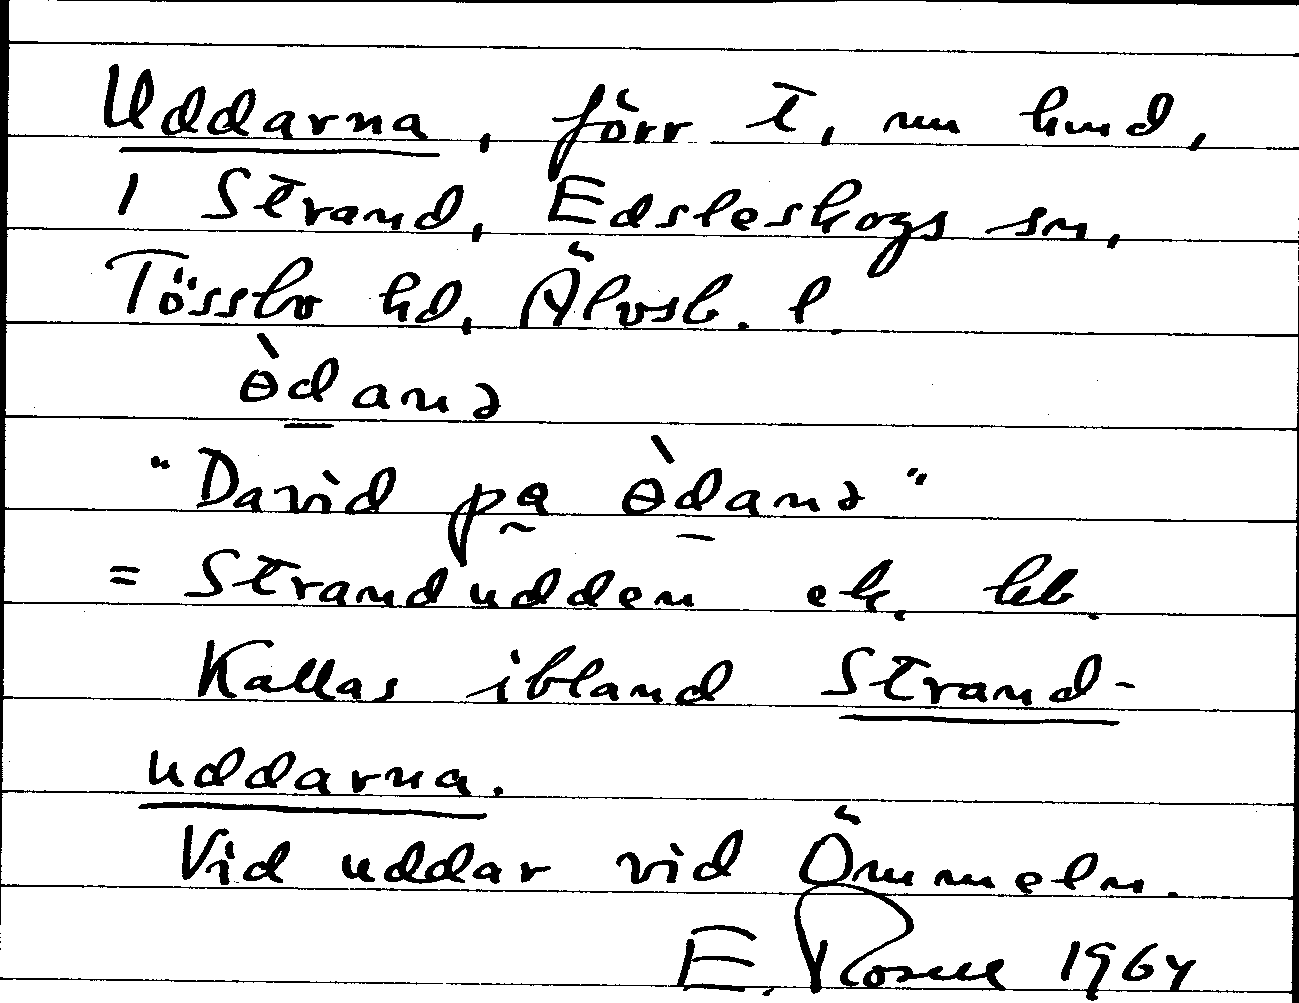 Uddarna, förr t, nu hmd,
i Strand, Edsleskogs sn,
Tössbo hd, Älvsb. l.
ѳ̀danə
"David pa̰ ѳ̀danə"
= Strandudden ek. kb.
Kallas ibland Strand-
uddarna.
Vid uddar vid Ömmeln.
E. Rosell 1964